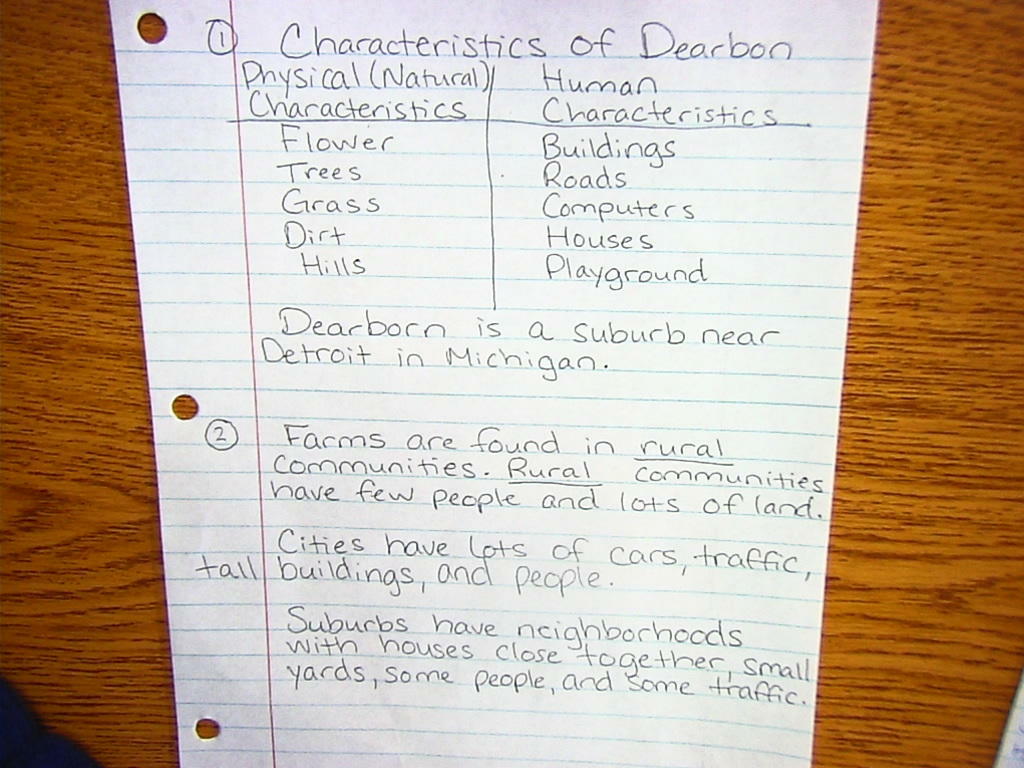 ① Characteristics of Dearbon
Physical (Natural) Human
Characteristics Characteristics
Flower Buildings
Trees Roads
Grass Computers
Dirt Houses
Hills Playground
Dearborn is a suburb near
Detroit in Michigan.
② Farms are found in rural
communities. Rural communities
have few people and lots of land.
Cities have lots of cars, traffic,
tall buildings, and people.
Suburbs have neighborhoods
with houses close together, small
yards, some people, and some traffic.